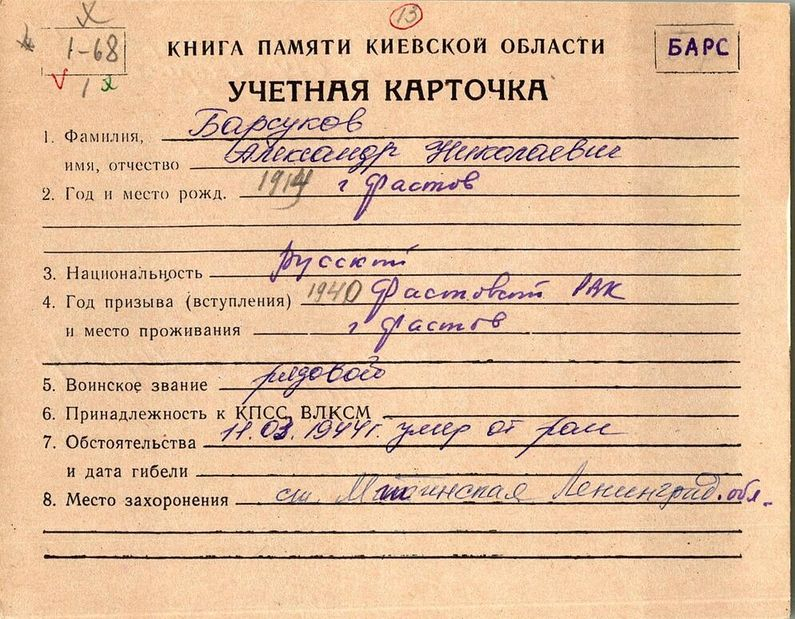 13
1-68
1
КНИГА ПАМЯТИ КИЕВСКОЙ ОБЛАСТИ
БАРС
УЧЕТНАЯ КАРТОЧКА
1. Фамилия, Барсуков
имя, отчество Александр Николаевич
2. Год и место рожд. 1914 г Фастов
3. Национальность русский
4. Год призыва (вступления) 1940 Фастовский РВК
и место проживания г Фастов
5. Воинское звание рядовой
6. Принадлежность к КПСС, ВЛКСМ
7. Обстоятельства 11.03.1944г. умер от ран
и дата гибели
8. Место захоронения ст. Ленинград. обл.